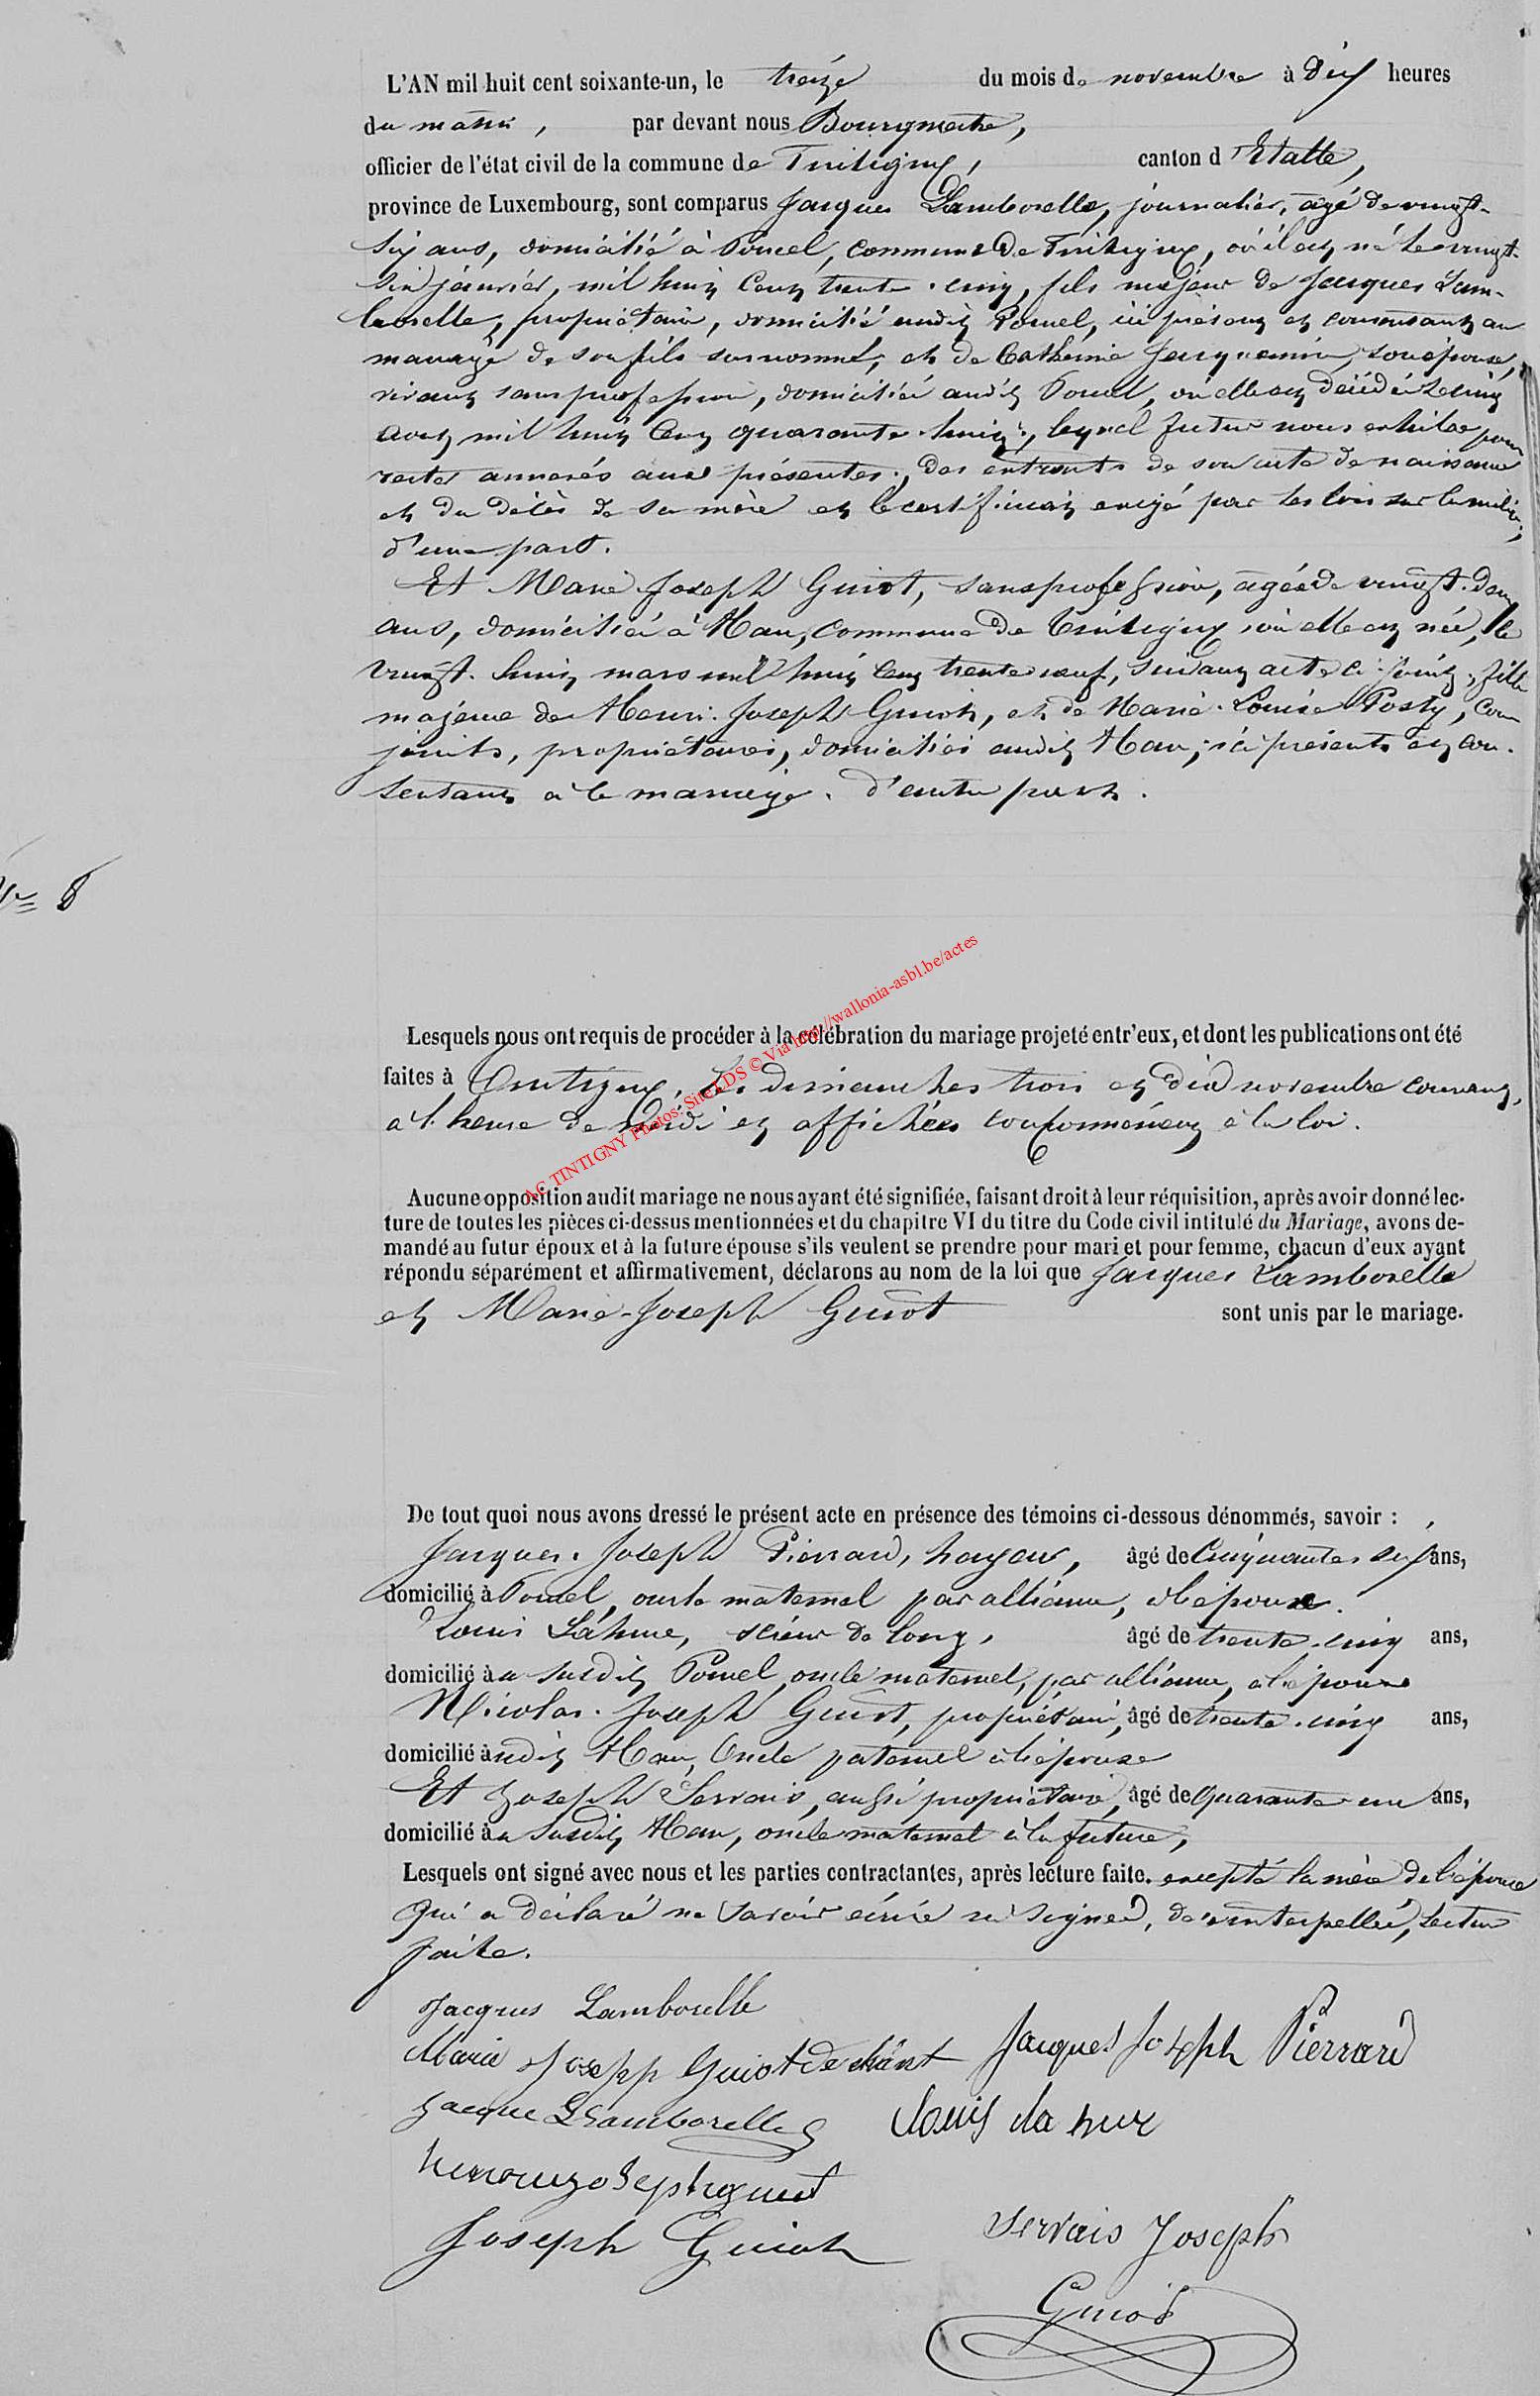 L'AN mil huit cent soixante-un, le treize du mois de novembre à dix heures
du matin, par devant nous Bourgmestre,
officier de l'état civil de la commune de Tintigny, canton d'Etalle,
province de Luxembourg, sont comparus Jacques Lamborelle, journalier, âgé de vingt-
six ans, domicilié à Poncel, commune de Tintigny, où il est né le vingt-
six janvier, mil huit cent trente-cinq, fils majeur de Jacques Lam-
borelle, propriétaire, domicilié audit Poncel, ici présent et consentant au
mariage de son fils susnommé, et de Catherine Jacquemin, son épouse,
vivant sans profession, domiciliée audit Poncel, où elle est décédée le cinq
août mil huit cent quarante-huit; lequel futur nous exhibe pour
rester annexés aux présentes, des extraits de son acte de naissance
et du décès de sa mère et le certificat exigé par les lois sur la milice;
d'une part.
Et Marie Joseph Guiot, sans profession, âgée de vingt-deux
ans, domiciliée à Han, commune de Tintigny, où elle est née, le
vingt-huit mars mil huit cent trente neuf, suivant acte ci-joint, fille
majeure de Henri-Joseph Guiot, et de Marie-Louise Posty, con
joints, propriétaires, domiciliés audit Han, ici présents et con-
sentant à le mariage. d'autre part.
N° 8
AC TINTIGNY Photos: Site LDS © Via http://wallonia-asbl.be/actes
Lesquels nous ont requis de procéder à la célébration du mariage projeté entr'eux, et dont les publications ont été
faites à Tintigny, les dimanches trois et dix novembre courant,
à l'heure de midi et affichées conformément à la loi.
Aucune opposition audit mariage ne nous ayant été signifiée, faisant droit à leur réquisition, après avoir donné lec-
ture de toutes les pièces ci-dessus mentionnées et du chapitre VI du titre du Code civil intitulé du Mariage, avons de-
mandé au futur époux et à la future épouse s'ils veulent se prendre pour mari et pour femme, chacun d'eux ayant
répondu séparément et affirmativement, déclarons au nom de la loi que Jacques Lamborelle
et Marie-Joseph Guiot sont unis par le mariage.
De tout quoi nous avons dressé le présent acte en présence des témoins ci-dessous dénommés, savoir :
Jacques-Joseph Pierrard, âgé de Cinquante-six ans,
domicilié à Poncel, oncle maternel par alliance, à l'époux.
Louis Lahure, scieur de long, âgé de trente-cinq ans,
domicilié au susdit Poncel, oncle maternel, par alliance, à l'époux
Nicolas-Joseph Guiot, propriétaire, âgé de trente-cinq ans,
domicilié audit Han, Oncle paternel à l'épouse
Et Joseph Servais, aussi propriétaire, âgé de quarante-un ans,
domicilié au susdit Han, oncle maternel à la future,
Lesquels ont signé avec nous et les parties contractantes, après lecture faite. excepté la mère de l'épouse
qui a déclaré ne savoir écrire ni signer, de ce interpellée, lecture
faite.
Jacques Lamborelle
Marie Josepp Guiot Jacques Joseph Pierrard
Jacque Lamborelle Louis la hure
Joseph Guiot Servais Joseph
Guiot